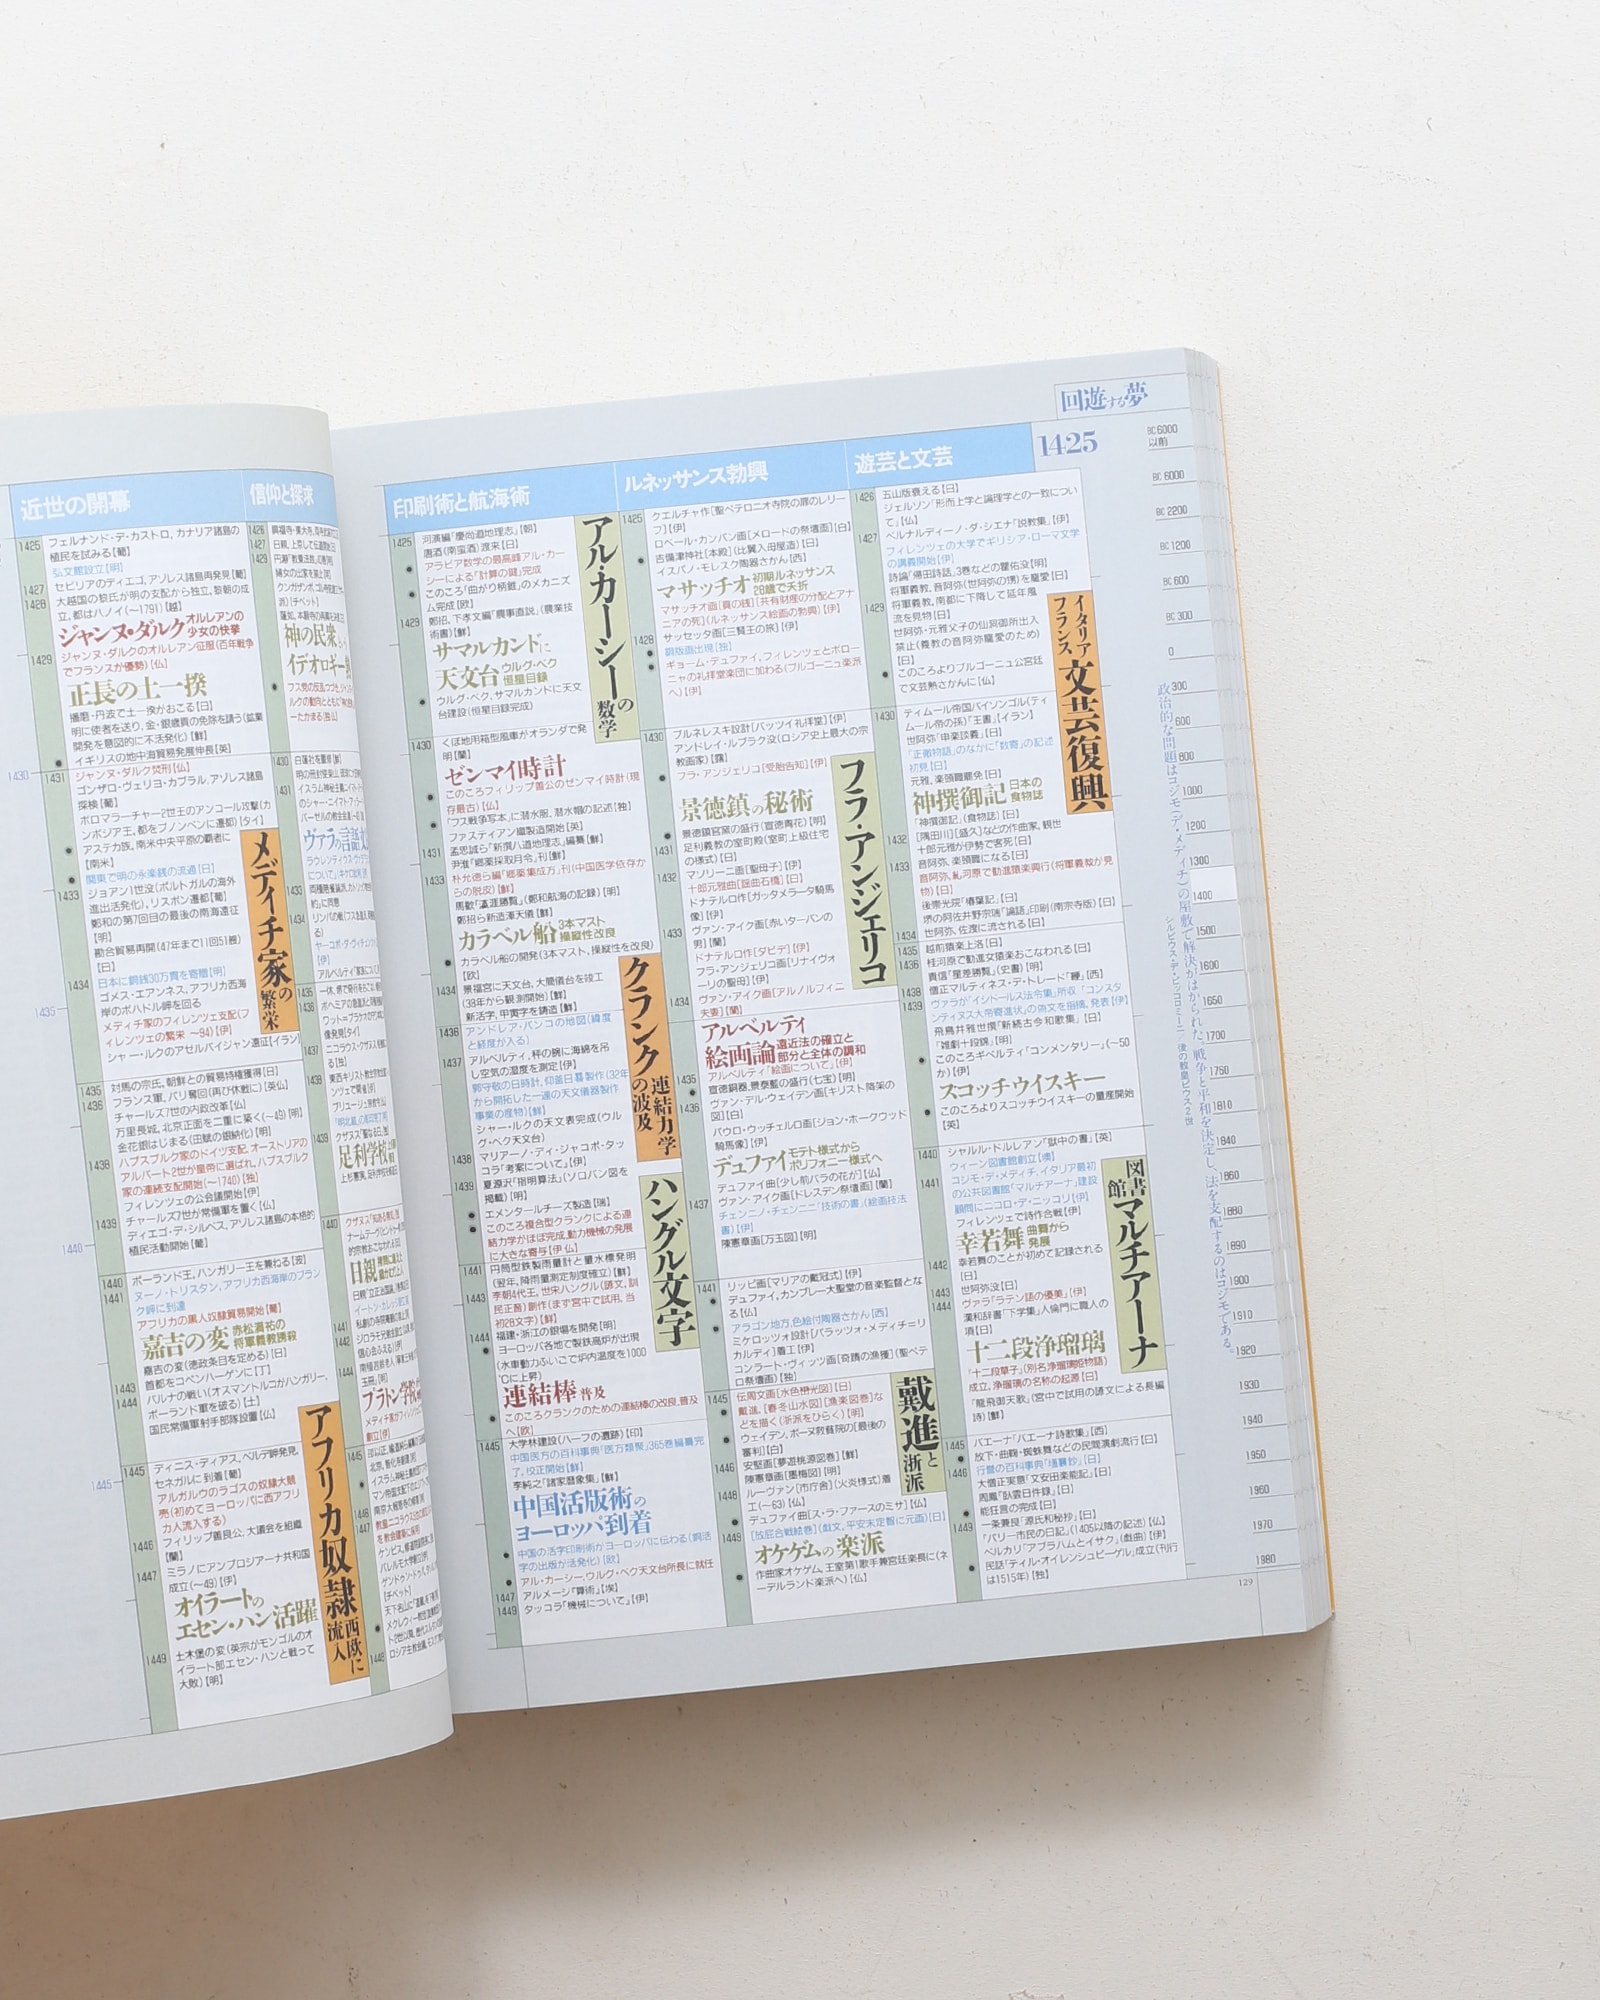 近世の開幕
1425
フェルナンド・デ・カストロ、カナリア諸島の
植民を試みる【葡】
弘文館設立【明】
1427
セビリアのディエゴ、アゾレス諸島再発見【葡】
1428
大越国の黎氏が明の支配から独立。黎朝の成
立。都はハノイ(〜1791)【越】
ジャンヌ・ダルク オルレアンの
少女の快挙
1429
ジャンヌ・ダルクのオルレアン征服(百年戦争
でフランスが優勢)【仏】
正長の土一揆
播磨・丹波で土一揆がおこる【日】
明に使者を送り、金・銀歳貢の免除を請う(鉱業
開発を意図的に不活発化)【鮮】
イギリスの地中海貿易発展伸長【英】
1430
1431
ジャンヌ・ダルク焚刑【仏】
ゴンザロ・ヴェリヨ・カブラル、アゾレス諸島
探検【葡】
ボロマラーチャー2世王のアンコール攻撃(カ
ンボジア王、都をプノンペンに遷都)【タイ】
アステカ族、南米中央平原の覇者に
【南米】
関東で明の永楽銭の流通【日】
1433
ジョアン1世没(ポルトガルの海外
進出活発化)、リスボン遷都【葡】
鄭和の第7回目の最後の南海遠征
【明】
勘合貿易再開(47年まで11回51艘)
【日】
1434
日本に銅銭30万貫を寄贈【明】
ゴメス・エアンネス、アフリカ西海
岸のボハドル岬を回る
メディチ家のフィレンツェ支配(フ
ィレンツェの繁栄 〜94)【伊】
シャー・ルクのアゼルバイジャン遠征【イラン】
メディチ家の繁栄
1435
1435
対馬の宗氏、朝鮮との貿易特権獲得【日】
1436
フランス軍、パリ奪回(再び休戦に)【英仏】
チャールズ7世の内政改革【仏】
万里長城、北京正面を二重に築く(〜49)【明】
金花銀はじまる(田賦の銀納化)【明】
1438
ハプスブルク家のドイツ支配。オーストリアの
アルバート2世が皇帝に選ばれ、ハプスブルク
家の連続支配開始(〜1740)【独】
フィレンツェの公会議開始【伊】
1439
チャールズ7世が常備軍を置く【仏】
ディエゴ・デ・シルベス、アゾレス諸島の本格的
植民活動開始【葡】
1440
1440
ポーランド王、ハンガリー王を兼ねる【波】
1441
ヌーノ・トリスタン、アフリカ西海岸のブラン
ク岬に到達
アフリカの黒人奴隷貿易開始【葡】
嘉吉の変 赤松満祐の
将軍義教謀殺
嘉吉の変(徳政条目を定める)【日】
1443
首都をコペンハーゲンに【丁】
1444
バルナの戦い(オスマントルコがハンガリー、
ポーランド軍を破る)【土】
国民常備軍射手部隊設置【仏】
1445
1445
ディニス・ディアス、ベルデ岬発見。
セネガルに到着【葡】
アルガルウのラゴスの奴隷大競
売(初めてヨーロッパに西アフリ
カ人流入する)
1446
フィリップ善良公、大議会を組織
【蘭】
1447
ミラノにアンブロシアーナ共和国
成立(〜49)【伊】
オイラートの
エセン・ハン活躍
1449
土木堡の変(英宗がモンゴルのオ
イラート部エセン・ハンと戦って
大敗)【明】
アフリカ奴隷 西欧に流入
信仰と探求
神の民衆
足利学校
日親
印刷術と航海術
1425
河演編『慶尚道地理志』【朝】
唐酒(南蛮酒)渡来【日】
アラビア数学の最高峰アル・カー
シーによる『計算の鍵』完成
このころ「曲がり柄錐」のメカニズ
ム完成【欧】
1429
鄭招、卞孝文編『農事直説』(農業技
術書)【鮮】
サマルカンドに
天文台 ウルグ・ベク
恒星目録
ウルグ・ベク、サマルカンドに天文
台建設(恒星目録完成)
アル・カーシーの数学
1430
くぼ地用箱型風車がオランダで発
明【蘭】
ゼンマイ時計
このころフィリップ善公のゼンマイ時計(現
存最古)【仏】
『フス戦争写本』に潜水服、潜水帽の記述【独】
ファスティアン織製造開始【英】
1431
孟思誠ら『新撰八道地理志』編纂【鮮】
尹淮『郷薬採取月令』刊【鮮】
1433
朴允徳ら編『郷薬集成方』刊(中国医学依存か
らの脱皮)【鮮】
馬歓『瀛涯勝覧』(鄭和航海の記録)【明】
鄭招ら新造渾天儀【鮮】
カラベル船 3本マスト
操縦性改良
カラベル船の開発(3本マスト、操縦性を改良)
【欧】
1434
景福宮に天文台、大簡儀台を竣工
(38年から観測開始)【鮮】
新活字、甲寅字を鋳造【鮮】
1436
アンドレア・バンコの地図(緯度
と経度が入る)
1437
アルベルティ、秤の腕に海綿を吊
し空気の湿度を測定【伊】
郭守敬の日時計、仰釜日晷製作(32年
から開拓した一連の天文儀器製作
事業の産物)【鮮】
シャー・ルクの天文表完成(ウル
グ・ベク天文台)
1438
マリアーノ・ディ・ジャコポ・タッ
コラ『考案について』【伊】
1439
夏源沢『指明算法』(ソロバン図を
掲載)【明】
エメンタールチーズ製造【瑞】
このころ複合型クランクによる連
結力学がほぼ完成。動力機械の発展
に大きな寄与【伊 仏】
クランクの波及 連結力学
1441
円筒型鉄製雨量計と量水標発明
(翌年、降雨量測定制度確立)【鮮】
1443
李朝4代王、世宋ハングル(諺文、訓
民正音)創作(まず宮中で試用。当
初28文字)【鮮】
1444
福建・浙江の銀場を開発【明】
ヨーロッパ各地で製鉄高炉が出現
(水車動力ふいごで炉内温度を1000
℃に上昇)
連結棒 普及
このころクランクのための連結棒の改良、普及
へ【欧】
ハングル文字
1445
大学林建設(ハーフの遺跡)【印】
中国医方の百科事典『医方類聚』365巻編纂完
了。校正開始【鮮】
李純之『諸家暦象集』【鮮】
中国活版術の
ヨーロッパ到着
中国の活字印刷術がヨーロッパに伝わる(銅活
字の出版が活発化)【欧】
アル・カーシー、ウルグ・ベク天文台所長に就任
1447
アルメージ『算術』【埃】
1449
タッコラ『機械について』【伊】
ルネッサンス勃興
1425
クエルチャ作[聖ペテロニオ寺院の扉のレリー
フ]【伊】
ロベール・カンパン画[メロードの祭壇画]【白】
吉備津神社[本殿](比翼入母屋造)【日】
イスパノ・モレスク陶器さかん【西】
マサッチオ 初期ルネッサンス
28歳で夭折
マサッチオ画[貢の銭][共有財産の分配とアナ
ニアの死](ルネッサンス絵画の勃興)【伊】
1428
サッセッタ画[三賢王の旅]【伊】
銅版画出現【独】
ギョーム・デュファイ、フィレンツェとボロー
ニャの礼拝堂楽団に加わる(ブルゴーニュ楽派
へ)【伊】
1430
ブルネレスキ設計[パッツイ礼拝堂]【伊】
アンドレイ・ルブラク没(ロシア史上最大の宗
教画家)【露】
フラ・アンジェリコ[受胎告知]【伊】
景徳鎮の秘術
景徳鎮官窯の盛行(宣徳青花)【明】
1431
足利義教の室町殿(室町上級住宅
の様式)【日】
1432
マソリーニ画[聖母子]【伊】
十郎元雅曲[謡曲石橋]【日】
ドナテルロ作[ガッタメラータ騎馬
像]【伊】
1433
ヴァン・アイク画[赤いターバンの
男]【蘭】
ドナテルロ作[ダビデ]【伊】
フラ・アンジェリコ画[リナイヴォ
ーリの聖母]【伊】
1434
ヴァン・アイク画[アルノルフィニ
夫妻]【蘭】
フラ・アンジェリコ
アルベルティ
絵画論 遠近法の確立と
部分と全体の調和
1435
アルベルティ『絵画について』【伊】
宣徳銅器、景泰藍の盛行(七宝)【明】
1436
ヴァン・デル・ウェイデン画[キリスト降架の
図]【白】
パウロ・ウッチェルロ画[ジョン・ホークウッド
騎馬像]【伊】
デュファイ モテト様式から
ポリフォニー様式へ
デュファイ曲[少し前バラの花が]【仏】
1437
ヴァン・アイク画[ドレスデン祭壇画]【蘭】
チェンニノ・チェンニニ『技術の書』(絵画技法
書)【伊】
陳憲章画[万玉図]【明】
1441
リッピ画[マリアの戴冠式]【伊】
デュファイ、カンブレー大聖堂の音楽監督とな
る【仏】
アラゴン地方、色絵付陶器さかん【西】
ミケロッツォ設計[パラッツォ・メディチ=リ
カルディ]着工【伊】
コンラート・ヴィッツ画[奇蹟の漁獲](聖ペテ
ロ祭壇画)【独】
1445
伝周文画[水色巒光図]【日】
戴進、[春冬山水図][漁楽図巻]な
どを描く(浙派をひらく)【明】
ウェイデン、ボーヌ救貧院の[最後の
審判]【白】
1446
安堅画[夢遊桃源図巻]【鮮】
陳憲章画[墨梅図]【明】
1448
ルーヴァン[市庁舎](火炎様式)着
工(〜63)【仏】
デュファイ曲[ス・ラ・ファースのミサ]【仏】
1449
[放屁合戦絵巻](戯文、平安末定智に元画)【日】
オケゲムの楽派
作曲家オケゲム、王室第1歌手兼宮廷楽長に(ネ
ーデルランド楽派へ)【仏】
戴進と浙派
遊芸と文芸
1426
五山版衰える【日】
ジェルソン『形而上学と論理学との一致につい
て』【仏】
1427
ベルナルディーノ・ダ・シエナ『説教集』【伊】
フィレンツェの大学でギリシア・ローマ文学
の講義開始【伊】
詩論『帰田詩話』3巻などの瞿佑没【明】
将軍義教、音阿弥(世阿弥の甥)を寵愛【日】
1429
将軍義教、南都に下降して延年風
流を見物【日】
世阿弥・元雅父子の仙洞御所出入
禁止(義教の音阿弥寵愛のため)
【日】
このころよりブルゴーニュ公宮廷
で文芸熱さかんに【仏】
イタリア フランス 文芸復興
1430
ティムール帝国バイソンゴル(ティ
ムール帝の孫)『王書』【イラン】
世阿弥『申楽談義』【日】
『正徹物語』のなかに「数寄」の記述
初見【日】
元雅、楽頭職罷免【日】
神撰御記 日本の
食物誌
『神撰御記』(食物誌)【日】
1432
[隅田川][盛久]などの作曲家、観世
十郎元雅が伊勢で客死【日】
1433
音阿弥、楽頭職になる【日】
音阿弥、糺河原で勧進猿楽興行(将軍義教が見
物)【日】
後崇光院『椿葉記』【日】
堺の阿佐井野宗瑞『論語』印刷(南宗寺版)【日】
1434
世阿弥、佐渡に流される【日】
1435
越前猿楽上洛【日】
1436
桂河原で勧進女猿楽おこなわれる【日】
費信『星差勝覧』(史書)【明】
1438
僧正マルティネス・デ・トレード『鞭』【西】
1439
ヴァラが『イシドールス法令集』所収『コンスタ
ンティヌス大帝寄進状』の偽文を指摘、発表【伊】
飛鳥井雅世撰『新続古今和歌集』【日】
『雑劇十段錦』【明】
このころギベルティ『コンメンタリー』(〜50
か)【伊】
スコッチウイスキー
このころよりスコッチウイスキーの量産開始
【英】
1440
シャルル・ドルレアン『獄中の書』【英】
ウィーン図書館創立【墺】
1441
コシモ・デ・メディチ、イタリア最初
の公共図書館「マルチアーナ」建設
顧問にニコロ・デ・ニッコリ【伊】
フィレンツェで詩作合戦【伊】
幸若舞 曲舞から
発展
1442
幸若舞のことが初めて記録される
【日】
1443
世阿弥没【日】
1444
ヴァラ『ラテン語の優美』【伊】
漢和辞書『下学集』人倫門に職人の
項【日】
十二段浄瑠璃
『十二段草子』(別名浄瑠璃姫物語)
成立。浄瑠璃の名称の起源【日】
『龍飛御天歌』(宮中で試用の諺文による長編
詩)【鮮】
図書館 マルチアーナ
1445
バエーナ『バエーナ詩歌集』【西】
放下・曲鞠・蜘蛛舞などの民間演劇流行【日】
1446
行誉の百科事典『壒嚢鈔』【日】
大僧正実意『文安田楽能記』【日】
周鳳『臥雲日件録』【日】
能狂言の完成【日】
1449
一条兼良『源氏和秘抄』【日】
『パリー市民の日記』(1405以降の記述)【仏】
ベルカリ『アブラハムとイサク』(戯曲)【伊】
民話『ティル・オイレンシュピーゲル』成立(刊行
は1515年)【独】
回遊する夢
1425
BC6000
以前
BC 6000
BC 2200
BC 1200
BC 600
BC 300
0
300
600
800
1000
1200
1300
1400
1500
1600
1650
1700
1760
1810
1840
1860
1880
1890
1900
1910
1920
1930
1940
1950
1960
1970
1980
政治的な問題はコジモ・デ・メディチの屋敷で解決がはかられた。戦争と平和を決定し、法を支配するのはコジモである。
シルビウス・デ・ピッコローミーニ 後の教皇ピウス2世
129